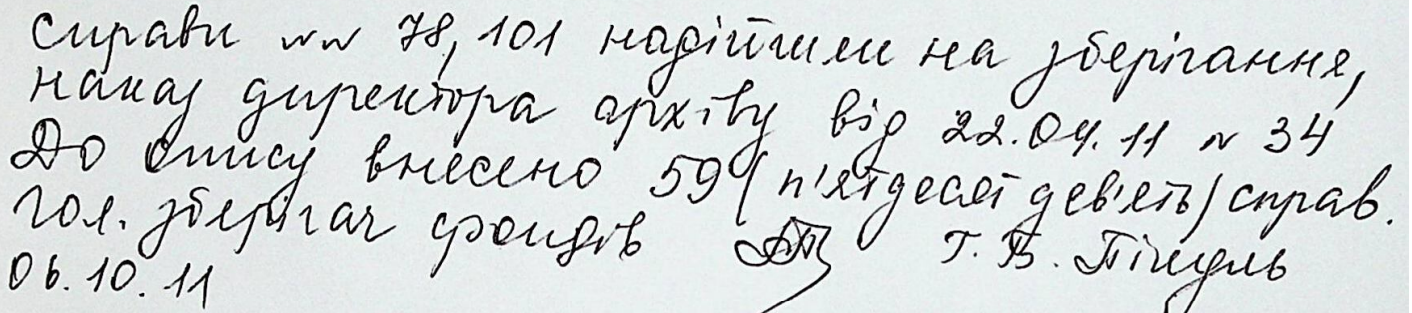 Справи №№ 78, 101 надійшли на зберігання,
наказ директора архіву від 22.04.11 № 34
До опису внесено 59 (п'ятдесят дев'ять) справ.
Гол. зберігач фондів Г. В. Пікуль
06.10.11